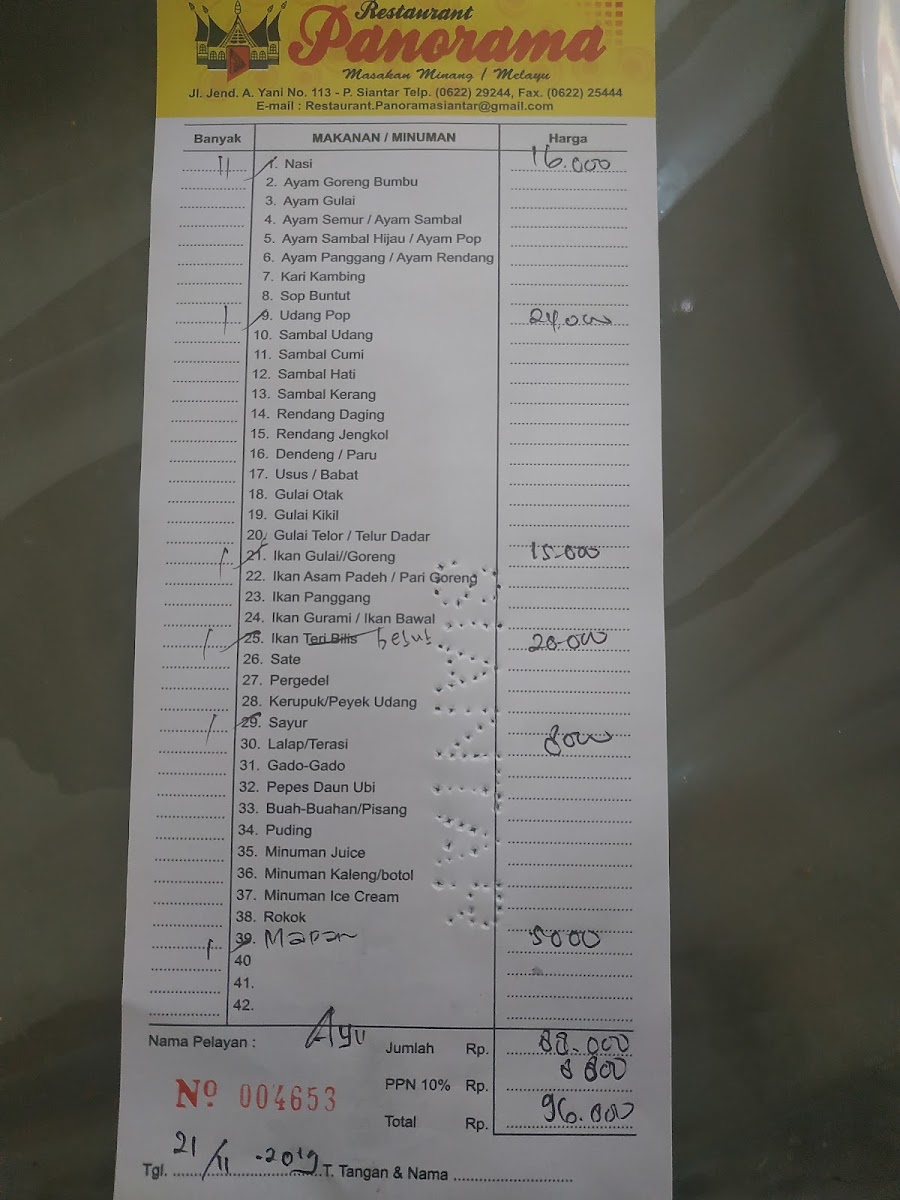 Restaurant
Panorama
Masakan Minang / Melayu
Jl. Jend. A. Yani No. 113 - P. Siantar Telp. (0622) 29244, Fax. (0622) 25444
E-mail : Restaurant.Panoramasiantar@gmail.com
Banyak MAKANAN / MINUMAN Harga
11 1. Nasi 16.000
2. Ayam Goreng Bumbu
3. Ayam Gulai
4. Ayam Semur / Ayam Sambal
5. Ayam Sambal Hijau / Ayam Pop
6. Ayam Panggang / Ayam Rendang
7. Kari Kambing
8. Sop Buntut
1 9. Udang Pop 24.000
10. Sambal Udang
11. Sambal Cumi
12. Sambal Hati
13. Sambal Kerang
14. Rendang Daging
15. Rendang Jengkol
16. Dendeng / Paru
17. Usus / Babat
18. Gulai Otak
19. Gulai Kikil
20. Gulai Telor / Telur Dadar
1 21. Ikan Gulai//Goreng 15.000
22. Ikan Asam Padeh / Pari Goreng
23. Ikan Panggang
24. Ikan Gurami / Ikan Bawal
1 25. Ikan Teri Bilis 20.000
26. Sate
27. Pergedel
28. Kerupuk/Peyek Udang
1 29. Sayur 8000
30. Lalap/Terasi
31. Gado-Gado
32. Pepes Daun Ubi
33. Buah-Buahan/Pisang
34. Puding
35. Minuman Juice
36. Minuman Kaleng/botol
37. Minuman Ice Cream
38. Rokok
1 39. 5000
40
41.
42.
Nama Pelayan : Ayu Jumlah Rp. 88.000
PPN 10% Rp. 8 800
Nº 004653
Total Rp. 96.800
Tgl. 21/11 - 2019 T. Tangan & Nama